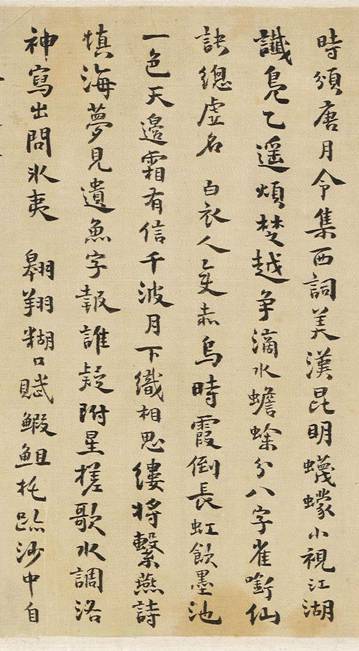 時頒唐月令集西詞美漢昆明蠛蠓小視江湖
讖鳬乙遥煩楚越争滴水蟾蜍分八字雀銜仙
訣總虚名　白衣人乞赤烏時霞倒長虹飲墨池
一色天邉霜有信千波月下織相思縷將繫燕詩
慎海夢見遺魚字報誰疑附星槎歌水調洛
神寫出問冰夷　翱翔糊口賦鰕䱇托跡沙中自